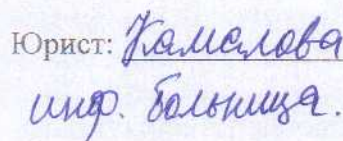 Юрист: Камалова
инф. больница.